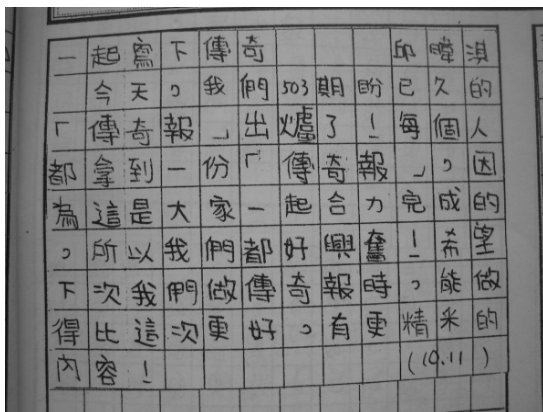 一起寫下傳奇 邱暐淇
今天，我們503期盼已久的
「傳奇報」出爐了！每個人
都拿到一份「傳奇報」，因
為這是大家一起合力完成的
，所以我們都好興奮！希望
下次我們做傳奇報時，能做
得比這次更好，有更精米的
內容！ (10.11)